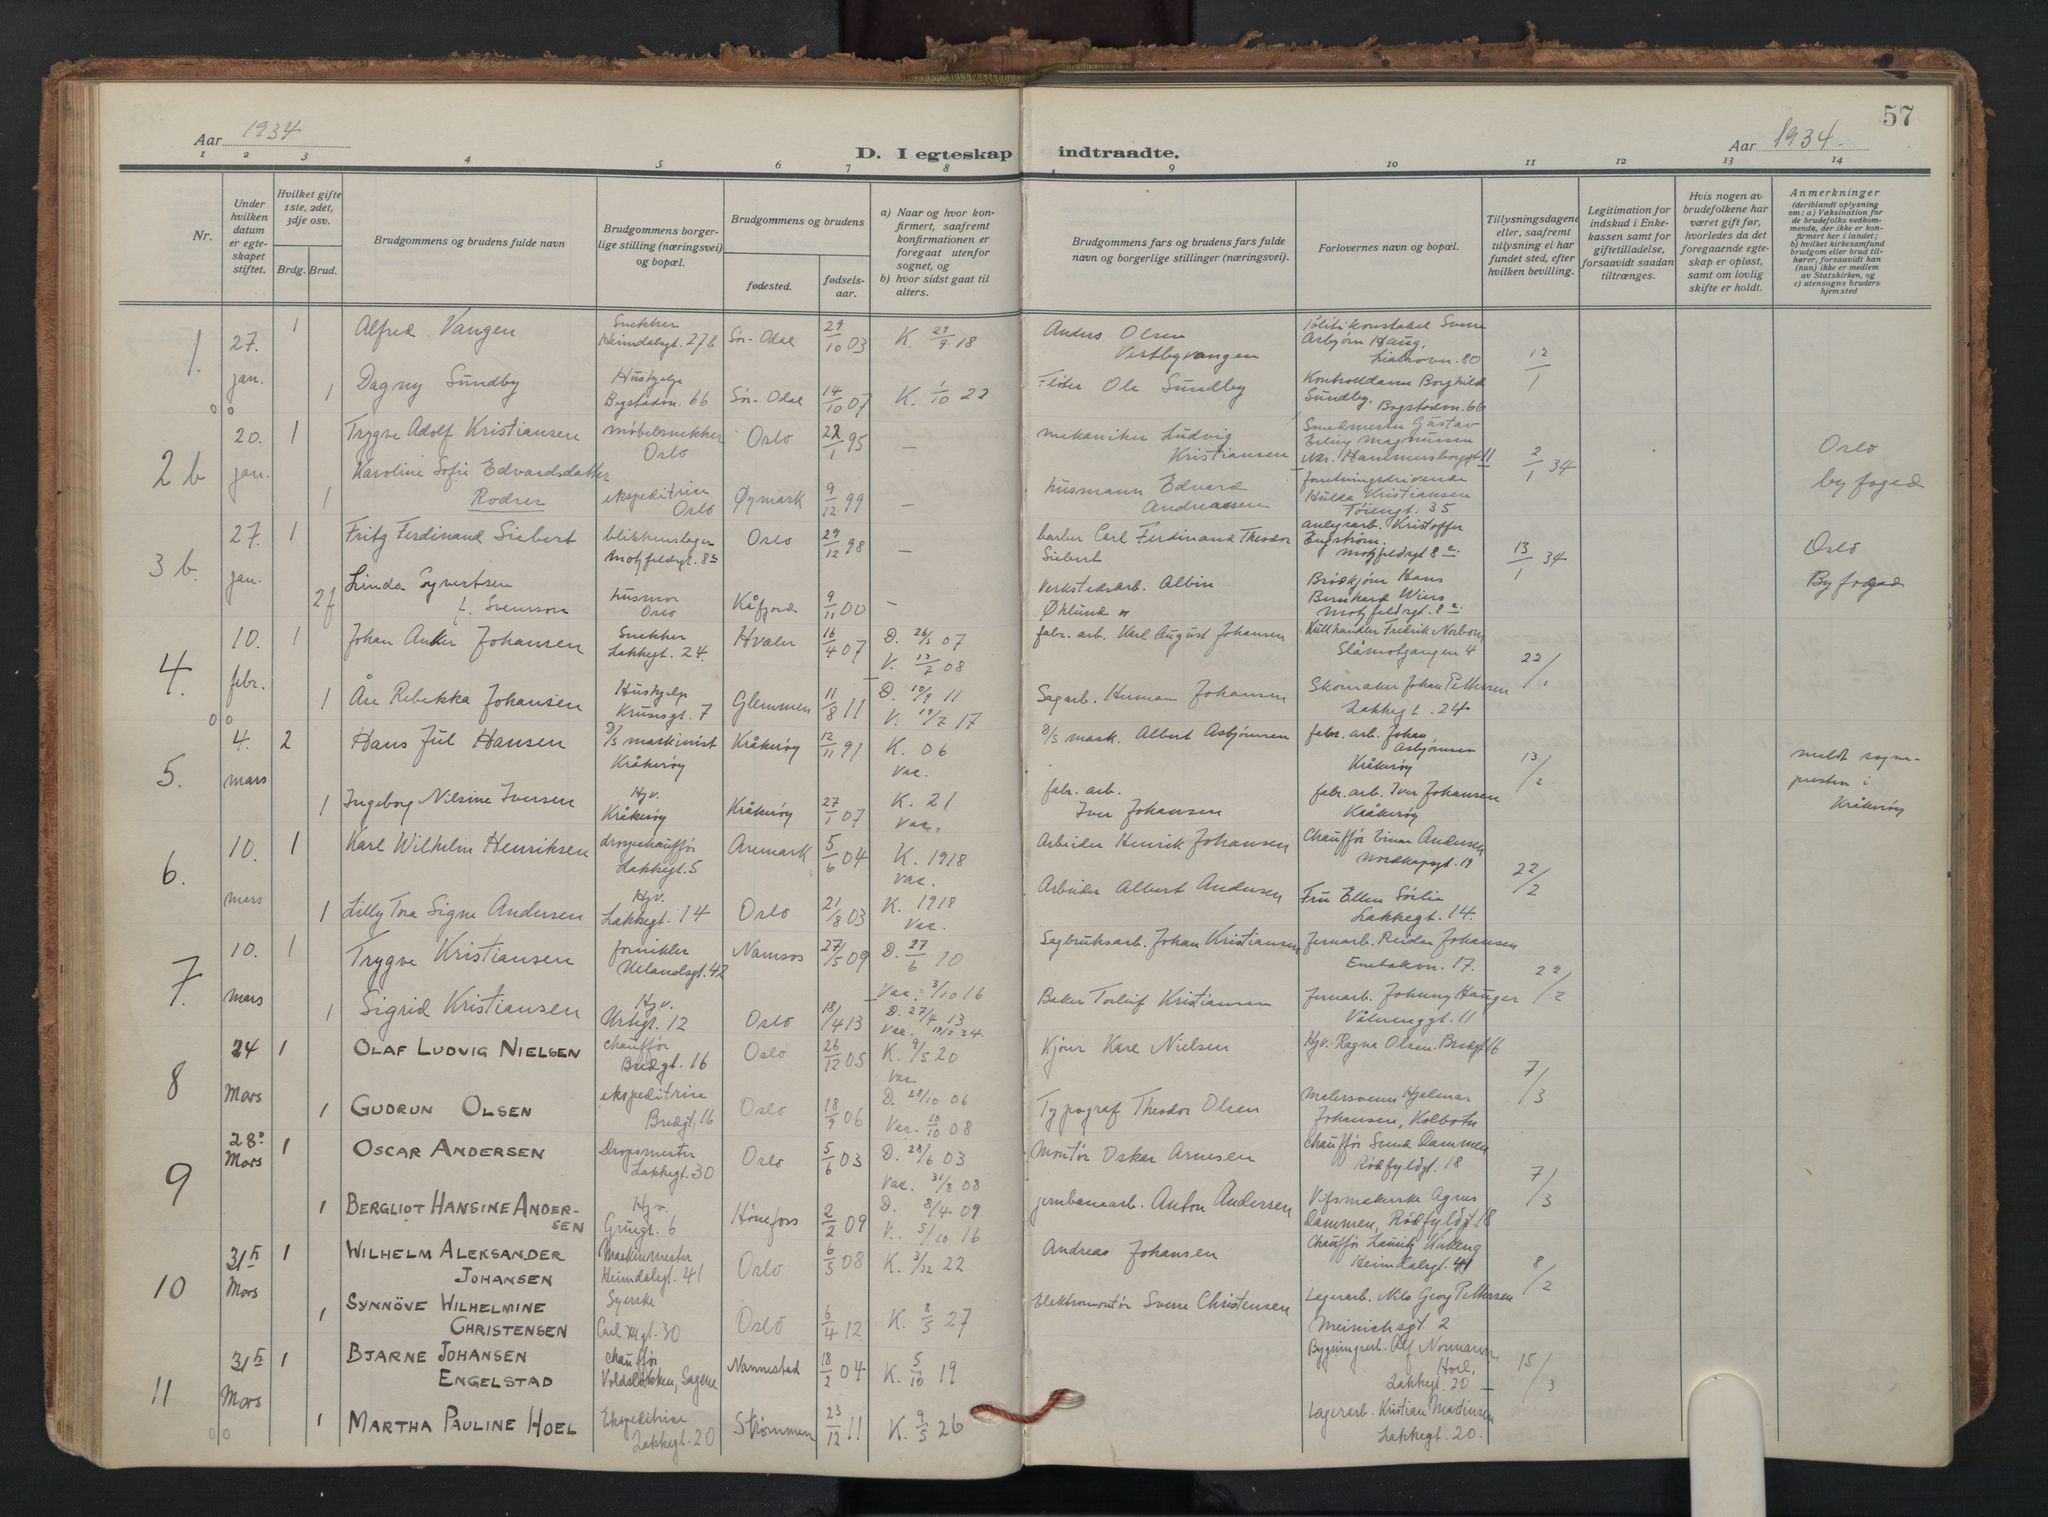 57
Aar 1934
D. I egteskap indtraadte.
Aar 1934.
1 2 3 4 5 6 7 8 9 10 11 12 13 14
Nr.
Under hvilken datum er egteskapet stiftet.
Hvilket gifte 1ste, 2det, 3dje osv.
Brdg. Brud.
Brudgommens og brudens fulde navn
Brudgommens borgerlige stilling (næringsvei) og bopæl.
Brudgommens og brudens
fødested.
fødselsaar.
a) Naar og hvor konfirmert, saafremt konfirmationen er foregaat utenfor sognet, og
b) hvor sidst gaat til alters.
Brudgommens fars og brudens fars fulde navn og borgerlige stillinger (næringsvei).
Forlovernes navn og bopæl.
Tillysningsdagene eller, saafremt tillysning ei har fundet sted, efter hvilken bevilling.
Legitimation for indskud i Enkekassen samt for giftetilladelse, forsaavidt saadan tiltrænges.
Hvis nogen av brudefolkene har været gift før, hvorledes da det foregaaende egteskap er opløst, samt om lovlig skifte er holdt.
Anmerkninger (deriblandt oplysning om: a) Vaksination for de brudefolks vedkommende, der ikke er konfirmert her i landet; b) hvilket kirkesamfund brudgom eller brud tilhører, forsaavidt han (hun) ikke er medlem av Statskirken, og c) utensogns bruders hjemsted
1. 27. jan. 1 Alfred Vangen Snekker Heimdalsgt. 27b Sør-Odal 29/10 03 K. 29/9 18 Anders Olsen Vestbyvangen Politikonstabel Sverre Asbjørn Haug, 80 12/1
1 Dagny Sundby Hushjelp Bogstadvn. 66 Sør-Odal 14/10 07 K. 1/10 22 Fløter Ole Sundby Kontrolldame Borghild Sundby, Bogstadvn. 66
2 b 20. jan. 1 Trygve Adolf Kristiansen møbelsnekker Oslo Oslo 22/1 95 — mekaniker Ludvig Kristiansen Smedmester Gustav Erling Magnussen Hammersborggt 11 2/1 34 Oslo byfoged
1 Karoline Sofie Edvardsdatter Rodser ekspeditrise Oslo Øymark 9/12 99 — husmann Edvard Andreassen forretningsdrivende Hulda Kristiansen Tøiengt. 35
3 b. 27. jan. 1 Fritz Ferdinand Siebert blikkenslager Motzfeldtsgt. 8 Oslo 29/12 98 — barber Carl Ferdinand Theodor Siebert Kristoffer Engstrøm. Motzfeldsgt 8 13/1 34 Oslo Byfoged
2 f Linda Syvertsen f. Svensson husmor Oslo Kåfjord 9/11 00 — Verkstedsarb. Albin Øhlund Brødkjører Hans Bernhard Wiers Motzfeldsgt. 8
4. 10. febr. 1 Johan Anker Johansen Snekker Lakkegt. 24. Hvaler 16/4 07 D. 26/5 07 V. 13/2 08 fabr. arb. Karl August Johansen Kullhandler Fredrik Norbom Slåmotgangen 4 22/1
1 Åse Rebekka Johansen Hushjelp Krusesgt. 7 Glemmen 11/8 11 D. 10/9 11 V. 19/7 17 Sagarb. Herman Johansen Skomaker Johan Pettersen Lakkegt. 24
5. 4. mars 2 Hans Jul Hansen D/S maskinist Kråkerøy Kråkerøy 12/11 91 K. 06 Vac. D/S mask. Albert Asbjørnsen fabr. arb. Johan Asbjørnsen Kråkerøy 13/2 meldt sognepresten i Kråkerøy
1 Ingeborg Nilsine Iversen Hjv. Kråkerøy Kråkerøy 27/1 07 K. 21 Vac. fabr. arb. Iver Johansen fabr. arb. Iver Johansen Kråkerøy
6. 10. mars 1 Karl Wilhelm Henriksen drosjechauffør Lakkegt. 5 Aremark 5/6 04 K. 1918 Vac. Arbeider Henrik Johansen Chauffør Einar Andersen Nordkapsgt. 19 22/2
1 Lilly Tora Signe Andersen Hjv. Lakkegt. 14 Oslo 21/8 03 K. 1918 Vac. Arbeider Albert Andersen Fru Ellen Sørlie Lakkegt. 14.
7. 10. mars 1 Trygve Kristiansen fornikler Uelandsgt. 42 Namsos 27/5 09 D. 27/6 10 Vac. 3/10 16 Sagbruksarb. Johan Kristiansen Jernarb. Reidar Johansen Enebakvn. 17. 22/2
1 Sigrid Kristiansen Hjv. Urtegt. 12 Oslo 18/4 13 D. 27/4 13 Vac. Baker Torleif Kristiansen Jernarb. Johnny Hauger Vålerenggt. 11
8 24 Mars 1 OLAF LUDVIG NIELSEN chauffør Bredgt. 16 Oslo 26/12 05 K. 9/5 20 Vac. Kjører Karl Nielsen Hjv. Ragna Olsen. Bredgt 16 7/3
1 GUDRUN OLSEN ekspeditrise Bredgt. 16 Oslo 18/9 06 D. 28/10 06 Vac. 10/10 08 Typograf Theodor Olsen Malersvenn Hjalmar Johansen, Kolbotn
9 28 Mars 1 OSCAR ANDERSEN Dropsmester Lakkegt. 30 Oslo 5/6 03 D. 28/6 03 Vac. 31/8 08 Montør Oskar Arnesen Chauffør Dammen Rødfyldgt. 18 7/3
1 BERGLIOT HANSINE ANDERSEN Hjv. Grungt. 6 Hønefoss 2/2 09 D. 8/4 09 V. 5/10 16 jernbanearb. Anton Andersen Agnes Dammen, Rødfyldgt. 18
10 31te Mars 1 WILHELM ALEKSANDER JOHANSEN Maskinmester Heimdalsgt. 41 Oslo 6/5 08 K. 3/12 22 Andreas Johansen Chauffør Lauritz Heimdalsgt. 41 8/2
1 SYNNÖVE WILHELMINE CHRISTENSEN Syerske Carl XIIgt. 30 Oslo 6/4 12 K. 8/5 27 Elektromontør Sverre Christensen Lagerarb. Nils Georg Pettersen Meinichsgt. 2
11 31te Mars 1 BJARNE JOHANSEN ENGELSTAD chauffør Voldsløkken, Sagene Nannestad 18/2 04 K. 5/10 19 Bygningsarb. Alf Normann Hoel, Lakkegt. 20 15/3
1 MARTHA PAULINE HOEL Ekspeditrise Lakkegt. 20 Strømmen 23/12 11 K. 9/5 26 Lagerarb. Kristian Martinsen Lakkegt. 20.